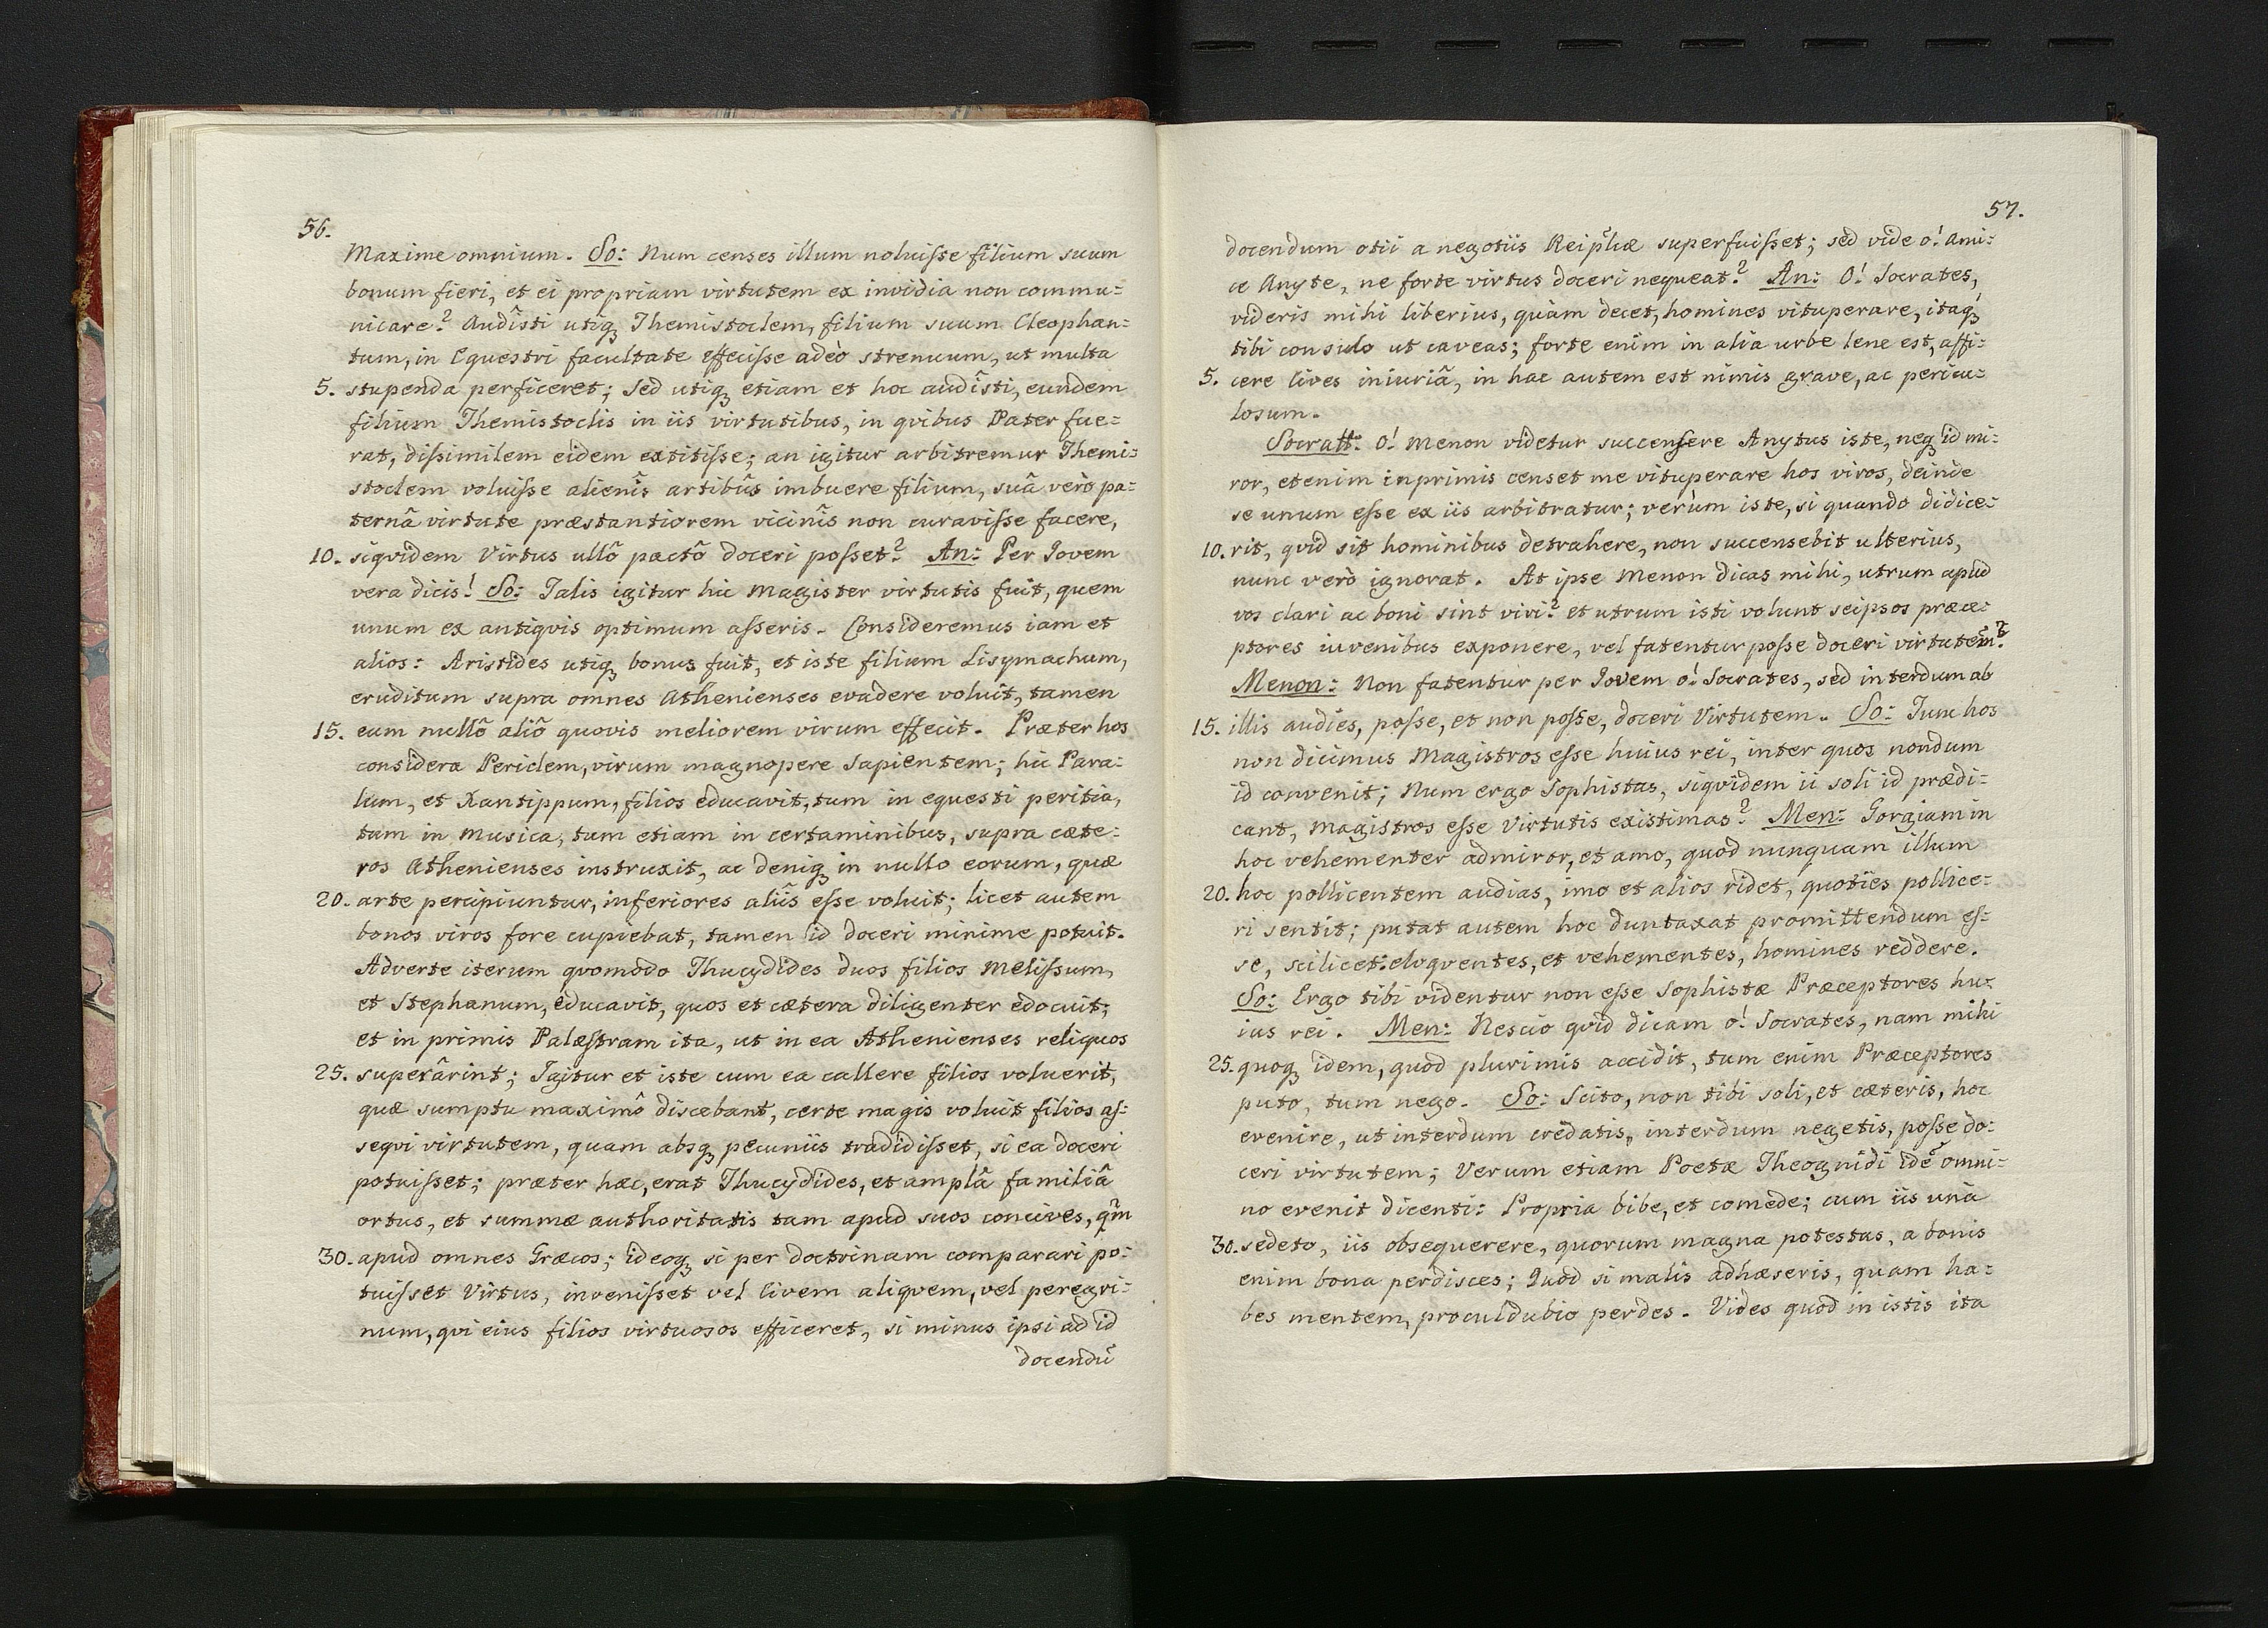 56.
Maxime omnium. So: Num censes illum noluiſse filium suum
bonum fieri, et ei propriam virtutem ex invidia non commu=
nicare? Audîsti utiq₃ Themistoclem, filium suum Cleophan=
tum, in Equestri facultate effeciſse adeò strenuum, ut multa
5. stupenda perficeret; sed utiq₃ etiam et hoc audîsti, eundem
filium Themistoclis in iis virtutibus, in qvibus Pater fue=
rat, diſsimilem eidem extitiſse; an igitur arbitremur Themi=
stoclem voluiſse alienîs artibûs imbuere filium, suâ verò pa=
ternâ virtute præstantiorem vicinîs non curaviſse facere,
10. siqvidem Virtus ullô pactô doceri poſset? An: Per Jovem
vera dicis! So: Talis igitur hic Magister virtutis fuit, quem
unum ex antiqvis optimum aſseris. Consideremus iam et
alios: Aristides utiq₃ bonus fuit, et iste filium Lisymachum,
eruditum supra omnes Athenienses evadere voluit, tamen
15. eum nullô aliô quovis meliorem virum effecit. Præter hos
considera Periclem, virum magnopere Sapientem; hic Para=
lum, et Xantippum, filios educavit, tum in equesti peritia,
tum in Musica, tum etiam in certaminibus, supra cæte=
ros Athenienses instruxit, ac deniq₃ in nullo eorum, quæ
20. arte percipiuntur, inferiores aliîs eſse voluit; licet autem
bonos viros fore cupiebat, tamen id doceri minime potuit.
Adverte iterum qvomodo Thucydides duos filios Meliſsum,
et Stephanum, educavit, quos et cætera diligenter edocuit;
et in primis Palæſtram ita, ut in ea Athenienses reliquos
25. superârint; Igitur et iste cum ea callere filios voluerit,
quæ sumptu maximô discebant, certe magis voluit filios aſ=
seqvi virtutem, quam absq₃ pecuniis tradidiſset, si ea doceri
potuiſset; præter hæc, erat Thucydides, et amplâ familiâ
ortus, et summæ authoritatis tam apud suos concives, qm̃
30. apud omnes Græcos; ideoq₃ si per doctrinam comparari po=
tuiſset Virtus, inveniſset vel Civem aliqvem, vel peregri=
num, qvi eius filios virtuosos efficeret, si minus ipsi ad id
docendũ
57.
docendum otii a negotiis Reip̃licæ superfuiſset; sed vide o! Ami=
ce Anyte, ne forte virtus doceri nequeat? An: O! Socrates,
videris mihi liberius, quàm decet, homines vituperare, itaq₃
tibi consulo ut caveas; forte enim in alia urbe lene est, affi=
5. cere Cives iniuriâ, in hac autem est nimis grave, ac pericu=
losum.
Socratt: O! Menon videtur succenſere Anytus iste, neq₃ id mi=
ror, etenim inprimis censet me vituperare hos viros, deinde
se unum eſse ex iis arbitratur; verùm iste, si quando didice=
10. rit, qvid sit hominibus detrahere, non succensebit ulterius,
nunc verò ignorat. At ipse Menon dicas mihi, utrum apud
vos clari ac boni sint viri? et utrum isti volunt seipsos præce=
ptores iuvenibus exponere, vel fatentur poſse doceri virtutem?
Menon: Non fatentur per Jovem o! Socrates, sed interdum ab
15. illis audies, poſse, et non poſse, doceri Virtutem. So: Tunc hos
non dicimus Magistros eſse huius rei, inter quos nondum
id convenit; Num ergo Sophistas, siqvidem ii soli id prædi=
cant, Magistros eſse Virtutis existimas? Men: Gorgiam in
hoc vehementer admiror, et amo, quod nunquam illum
20. hoc pollicentem audias, imo et alios ridet, quoties pollice=
ri sentit; putat autem hoc duntaxat promittendum eſ=
se, scilicet: eloqventes, et vehementes, homines reddere.
So: Ergo tibi videntur non eſse Sophistæ Præceptores hu=
ius rei. Men: Nescio qvid dicam o! Socrates, nam mihi
25. quoq₃ idem, quod plurimis accidit, tum enim Præceptores
puto, tum nego. So: Scito, non tibi soli, et cæteris, hoc
evenire, ut interdum credatis, interdum negetis, poſse do=
ceri virtutem; Verum etiam Poetæ Theognidi idẽ omni=
no evenit dicenti: Propria bibe, et comede; cum iis unà
30. sedeto, iis obsequerere, quorum magna potestas, a bonis
enim bona perdisces; Quod si malis adhæseris, quam ha=
bes mentem, proculdubio perdes. Vides quod in istis ita